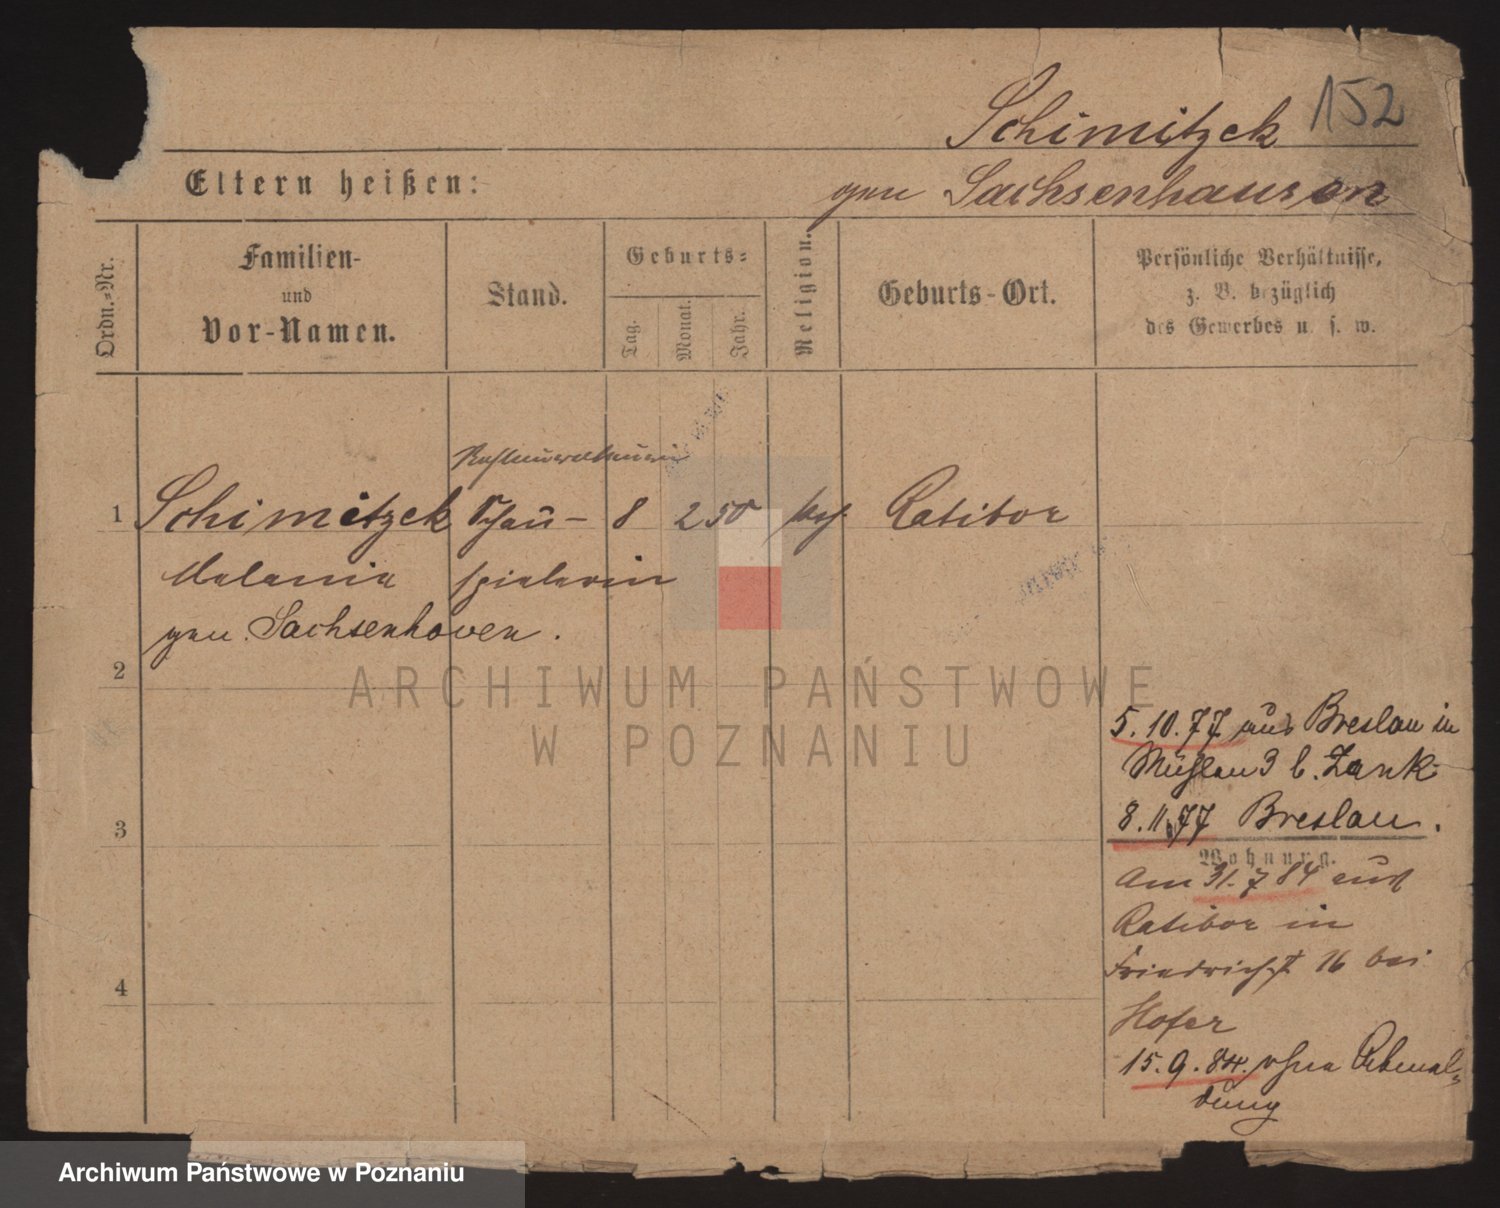 Schimitzek 152
Eltern heißen:
gen Sachsenhausen
Ordn.=Nr.
Familien-
und
Vor-Namen.
Stand.
Geburts=
Tag.
Monat.
Jahr.
Religion.
Geburts-Ort.
Persönliche Verhältnisse,
z. B. bezüglich
des Gewerbes u. s. w.
1 Schimitzek Schau- 8 2 50 Ratibor
Melanie spielerin
gen. Sachsenhoven.
2
ARCHIWUM PAŃSTWOWE
W POZNANIU
5. 10. 77 aus Breslau in
Mühlen 3 b. Zank
3
8. 11. 77 Breslau.
Wohnung.
Am 31. 7 84 aus
Ratibor in
4
Friedrichst 16 bei
Hofer
15. 9. 84. ohne Abmel=
dung
Archiwum Państwowe w Poznaniu